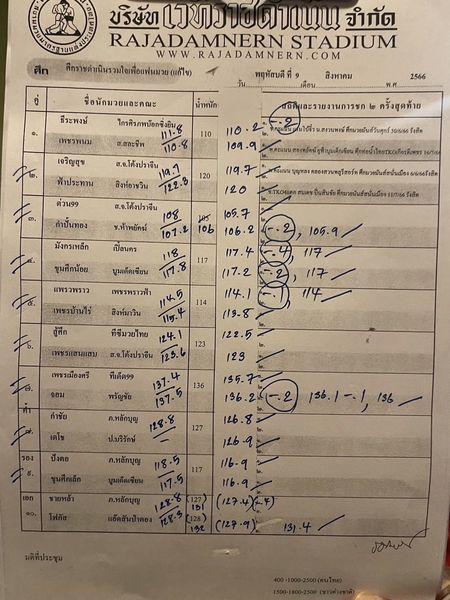 บริษัท เวทีราชดำเนิน จำกัด
RAJADAMNERN STADIUM
WWW.RAJADAMNERN.COM
ศึก ศึกราชดำเนินรวมใจเพื่อแฟนมวย (แก้ไข) วัน พฤหัสบดี ที่ 9 เดือน สิงหาคม พ.ศ 2566
คู่ ชื่อนักมวยและคณะ น้ำหนัก สถิติและรายงานการชก ๒ ครั้งสุดท้าย
๑. ธีระพงษ์ 111.8 110 110.2 -.2
เพชรพนม ส.สละชีพ 110.8 109.9
๒. เจริญสุข ส.จ.โต้งปราจีน 119.7 120 119.7
ฟ้าประทาน สิงห์อาวิน 122.3 120
๓. ด่วน99 ส.จ.โต้งปราจีน 108 105 105.7
ลำปั้นทอง ช.ห้าพยัคฆ์ 107.2 106 106.2 -.2, 105.9
๔. มังกรเหล็ก เปี๋ยนคร 118 117 117.4 -.4, 117
ขุนศึกน้อย บูมเด็กเซียน 117.8 117.2 -.2, 117
๕. แพรวพราว เพชรพราวฟ้า 114.5 114 114.1 -.1, 114
เพชรบ้านไร่ สิงห์มาวิน 115.4 113.8
๖. สู้ศึก ทีซีมวยไทย 124.1 123 122.5
เพชรแสนแสบ ส.จ.โต้งปราจีน 123.6 123
๗. เพชรเมืองศรี ทีเด็ด99 137.4 136 135.7
จอม พรัญชัย 137.5 136.2 -.2 136.1 -.1, 136
ค่ำ กำชัย ภ.หลักบุญ 128.8 127 126.8
๘. เดโช ป.บริรักษ์ - 126.9
รอง ปังตอ ภ.หลักบุญ 118.5 117 116.9
๙. ขุนศึกเล็ก บูมเด็กเซียน 117.5 116.9
เอก ชายหล้า ภ.หลักบุญ 128.8 (127) 131 (127.4) (-.4)
๑๐. โฟกัส แอ๊ดสันป่าตอง 128.3 (128) 132 (127.9) 131.4
มติที่ประชุม
400 -1000-2500 (คนไทย)
1500-1800-2500 (ชาวต่างชาติ)